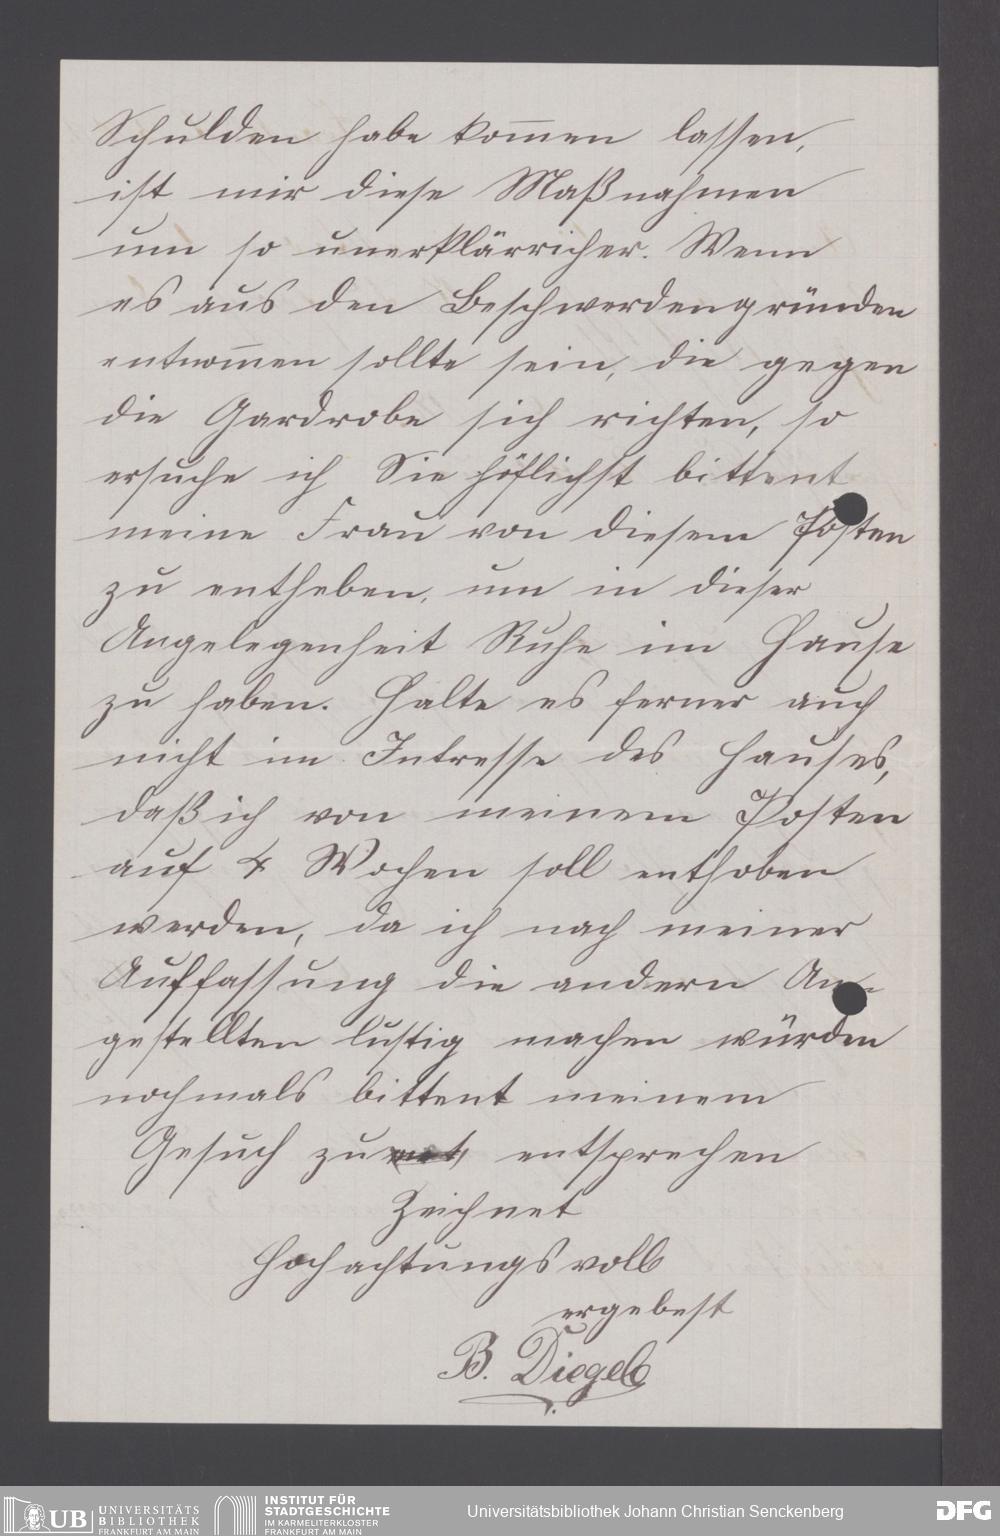 Schulden habe kom̅en lassen,
ist mir diese Maßnahmen
um so unerklärricher. Wenn
es aus den Beschwerdengründen
entnom̅en sollte sein, die gegen
die Gardrobe sich richten, so
ersuche ich Sie höflichst bittent
meine Frau von diesem Posten
zu entheben, um in dieser
Angelegenheit Ruhe im Hause
zu haben. Halte es ferner auch
nicht im Intresse des Hauses,
daß ich von meinem Posten
auf 4 Wochen soll enthoben
werden, da ich nach meiner
Auffassung die andern An-
gestellten lustig machen würden
nochmals bittent meinem
Gesuch zu entsprechen
Zeichnet
Hochachtungsvoll
ergebest
B. Diegel
UB UNIVERSITÄTS BIBLIOTHEK FRANKFURT AM MAIN
INSTITUT FÜR STADTGESCHICHTE IM KARMELITERKLOSTER FRANKFURT AM MAIN
Universitätsbibliothek Johann Christian Senckenberg
DFG